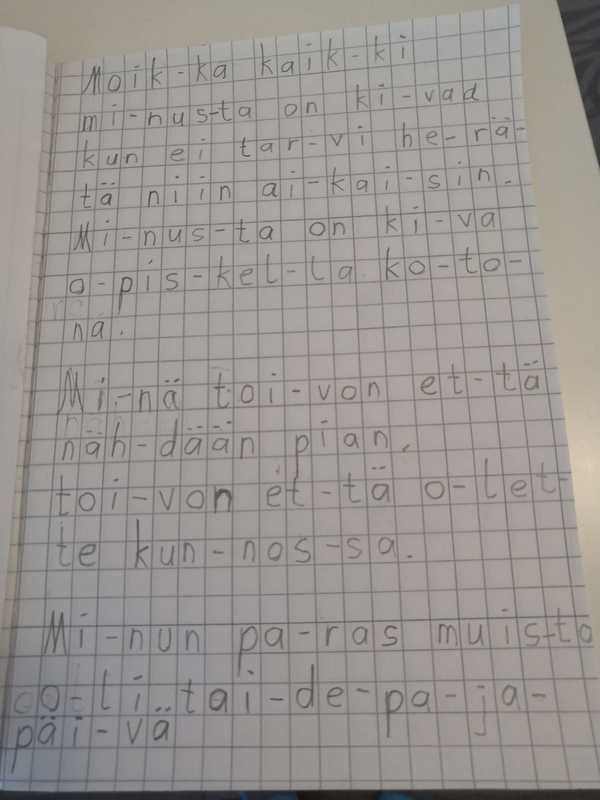 Moik-ka kaik-ki
mi-nus-ta on ki-vad
kun ei tar-vi he-rä-
tä niin ai-kai-sin.
Mi-nus-ta on ki-va
o-pis-kel-la ko-to-
na.
Mi-nä toi-von et-tä
näh-dään pian,
toi-von et-tä o-let-
te kun-nos-sa.
Mi-nun pa-ras muis-to
o-li tai-de-pa-ja-
päi-va